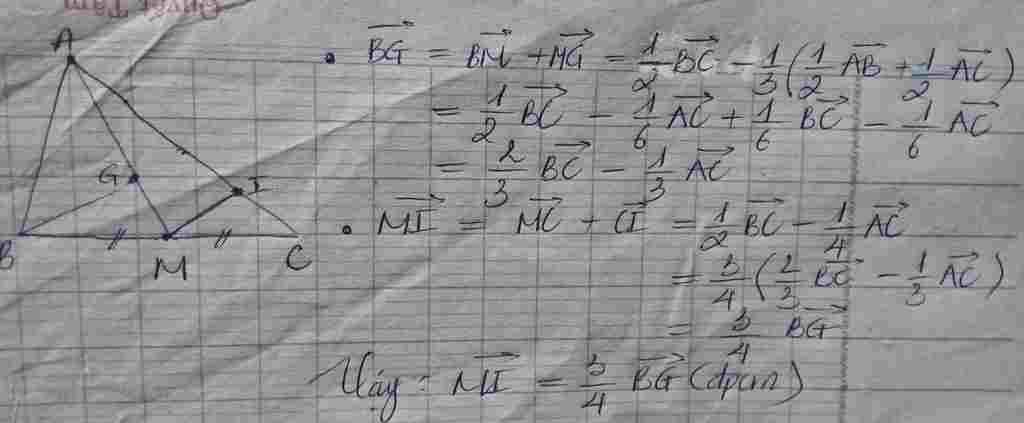 A
G
I
B
M
C
• \overrightarrow{BG} = \overrightarrow{BM} + \overrightarrow{MG} = \frac{1}{2} \overrightarrow{BC} - \frac{1}{3} (\frac{1}{2} \overrightarrow{AB} + \frac{1}{2} \overrightarrow{AC})
= \frac{1}{2} \overrightarrow{BC} - \frac{1}{6} \overrightarrow{AC} + \frac{1}{6} \overrightarrow{BC} - \frac{1}{6} \overrightarrow{AC}
= \frac{2}{3} \overrightarrow{BC} - \frac{1}{3} \overrightarrow{AC}
• \overrightarrow{MI} = \overrightarrow{MC} + \overrightarrow{CI} = \frac{1}{2} \overrightarrow{BC} - \frac{1}{4} \overrightarrow{AC}
= \frac{3}{4} (\frac{2}{3} \overrightarrow{BC} - \frac{1}{3} \overrightarrow{AC})
= \frac{3}{4} \overrightarrow{BG}
Vậy: \overrightarrow{MI} = \frac{3}{4} \overrightarrow{BG} (đpcm)